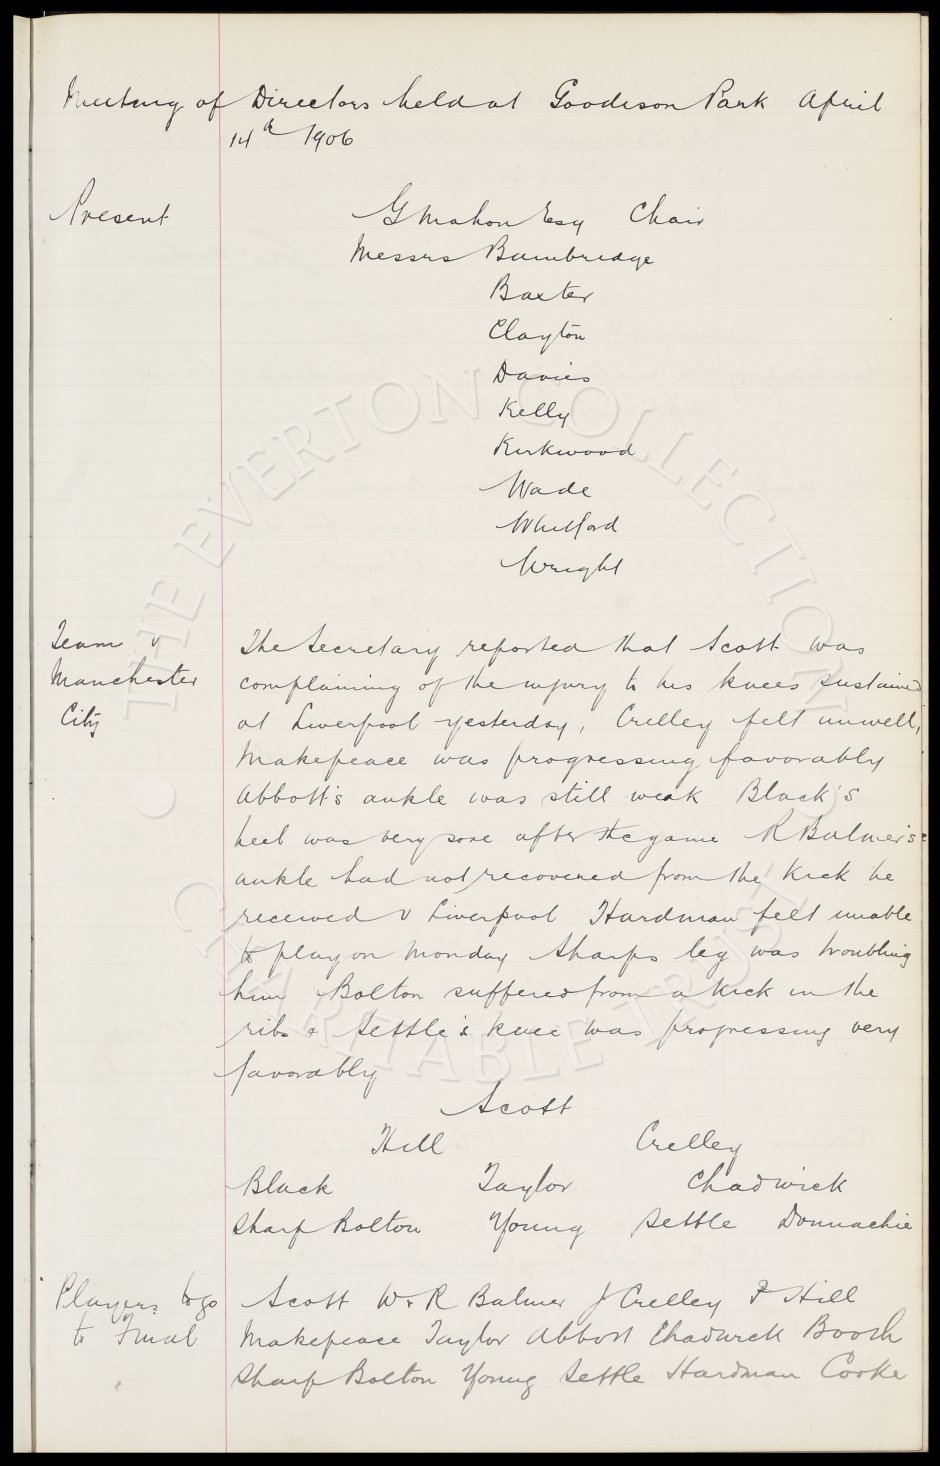 Meeting of Directors held at Goodison Park April
14th 1906
Present G Mahon Esq Chair
Messrs Bainbridge
Baxter
Clayton
Davies
Kelly
Kirkwood
Wade
Whitford
Wright
Team v The Secretary reported that Scott was
Manchester complaining of the injury to his knees sustained
City at Liverpool yesterday, Crelley felt unwell,
Makepeace was progressing favorably
Abbott's ankle was still weak Black's
heel was very sore after the game R Balmer's
ankle had not recovered from the kick he
received v Liverpool Hardman felt unable
to play on Monday Sharps leg was troubling
him Bolton suffered from a kick in the
ribs & Settle's knee was progressing very
favorably
Scott
Hill Crelley
Black Taylor Chadwick
Sharp Bolton Young Settle Donnachie
Players to go Scott W & R Balmer J Crelley F Hill
to Final Makepeace Taylor Abbott Chadwick Booth
Sharp Bolton Young Settle Hardman Cooke
THE EVERTON COLLECTION
CHARITABLE TRUST